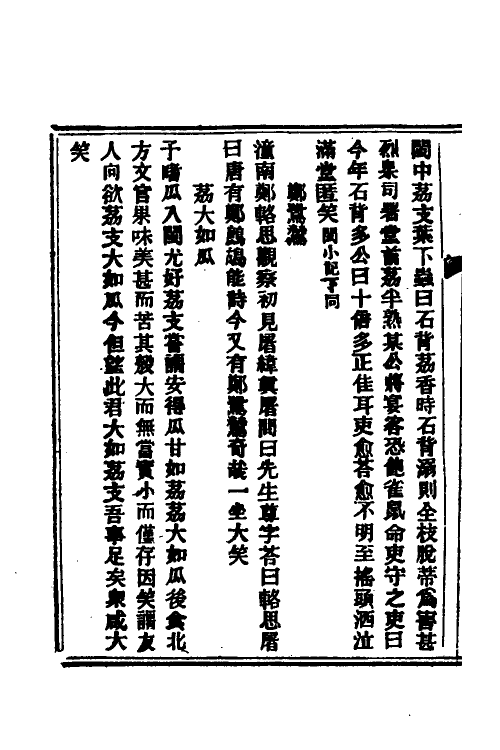 閩中荔支葉下蟲曰石背荔香時石背溺則全枝脫蒂為害甚
烈臬司署堂前荔半熟某公將宴客恐飽雀鼠命吏守之吏曰
今年石背多公曰十倍多正佳耳吏愈答愈不明至搖頭洒泣
滿堂匿笑閩小記下同
鄭鴛鴦
潼南鄭輅思觀察初見屠緯真屠問曰先生尊字答曰輅思屠
曰唐有鄭鷓鴣能詩今又有鄭鴛鴦奇哉一坐大笑
荔大如瓜
予嗜瓜入閩尤好荔支嘗謂安得瓜甘如荔荔大如瓜後食北
方文官果味美甚而苦其殼大而無當實小而僅存因笑謂友
人向欲荔支大如瓜今但望此君大如荔支吾事足矣衆咸大
笑